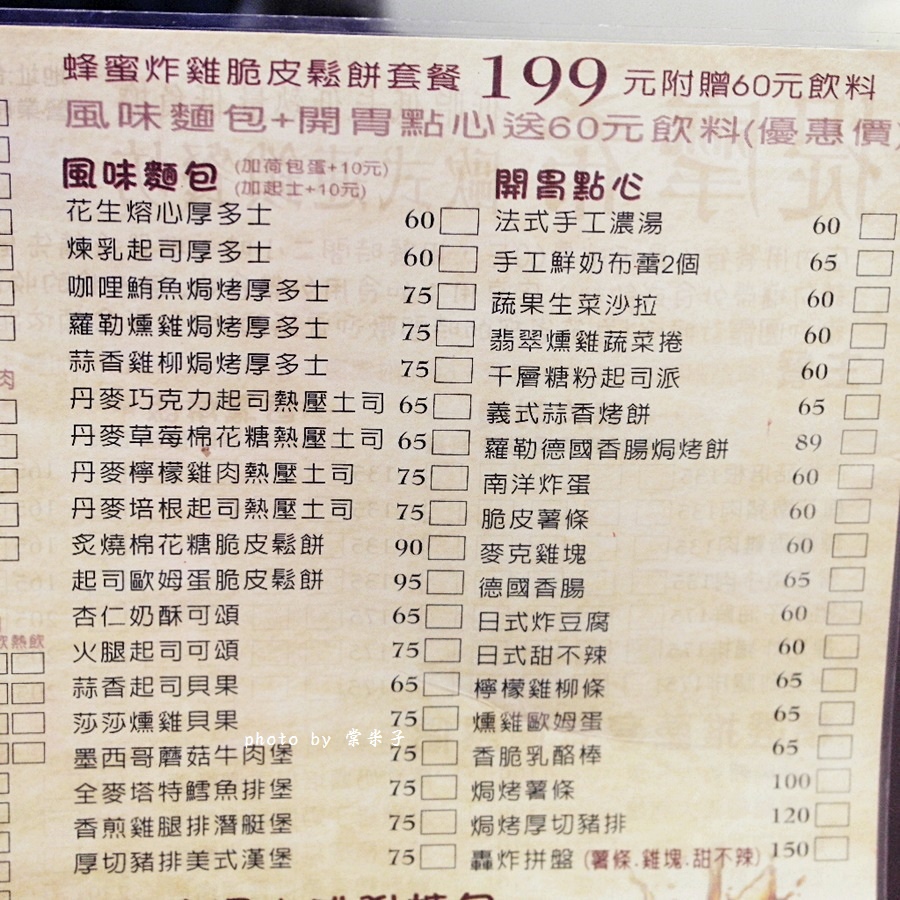 蜂蜜炸雞脆皮鬆餅套餐 199 元附贈60元飲料
風味麵包+開胃點心送60元飲料(優惠價)
風味麵包 (加荷包蛋+10元)
(加起士+10元)
花生熔心厚多士 60
煉乳起司厚多士 60
咖哩鮪魚焗烤厚多士 75
蘿勒燻雞焗烤厚多士 75
蒜香雞柳焗烤厚多士 75
丹麥巧克力起司熱壓土司 65
丹麥草莓棉花糖熱壓土司 65
丹麥檸檬雞肉熱壓土司 75
丹麥培根起司熱壓土司 75
炙燒棉花糖脆皮鬆餅 90
起司歐姆蛋脆皮鬆餅 95
杏仁奶酥可頌 65
火腿起司可頌 75
蒜香起司貝果 65
莎莎燻雞貝果 75
墨西哥蘑菇牛肉堡 75
全麥塔特鱈魚排堡 75
香煎雞腿排潛艇堡 75
厚切豬排美式漢堡 75
開胃點心
法式手工濃湯 60
手工鮮奶布蕾2個 65
蔬果生菜沙拉 60
翡翠燻雞蔬菜捲 60
千層糖粉起司派 60
義式蒜香烤餅 65
蘿勒德國香腸焗烤餅 89
南洋炸蛋 60
脆皮薯條 60
麥克雞塊 60
德國香腸 65
日式炸豆腐 60
日式甜不辣 60
檸檬雞柳條 65
燻雞歐姆蛋 65
香脆乳酪棒 65
焗烤薯條 100
焗烤厚切豬排 120
轟炸拼盤 (薯條.雞塊.甜不辣) 150
肉
飲熱飲
photo by 棠米子